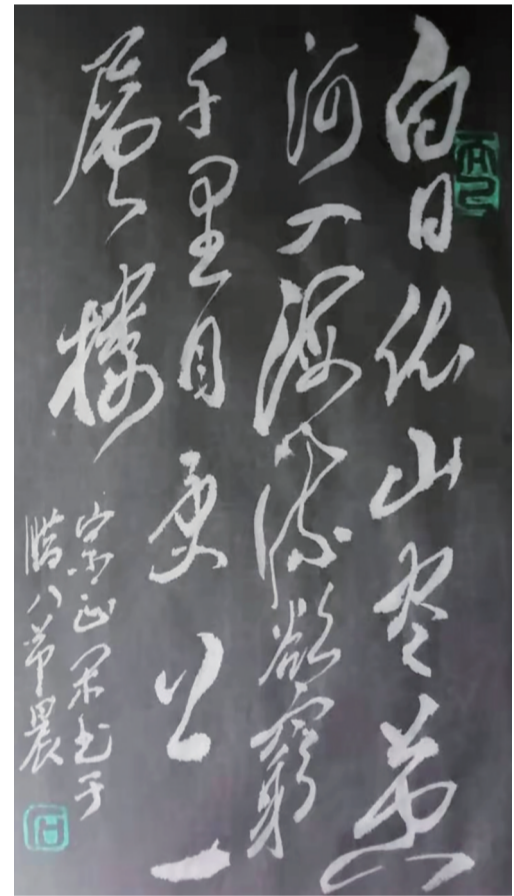 白日依山尽黄
河入海流欲窮
千里目更上一
層楼
宗正书于
腊八节晨